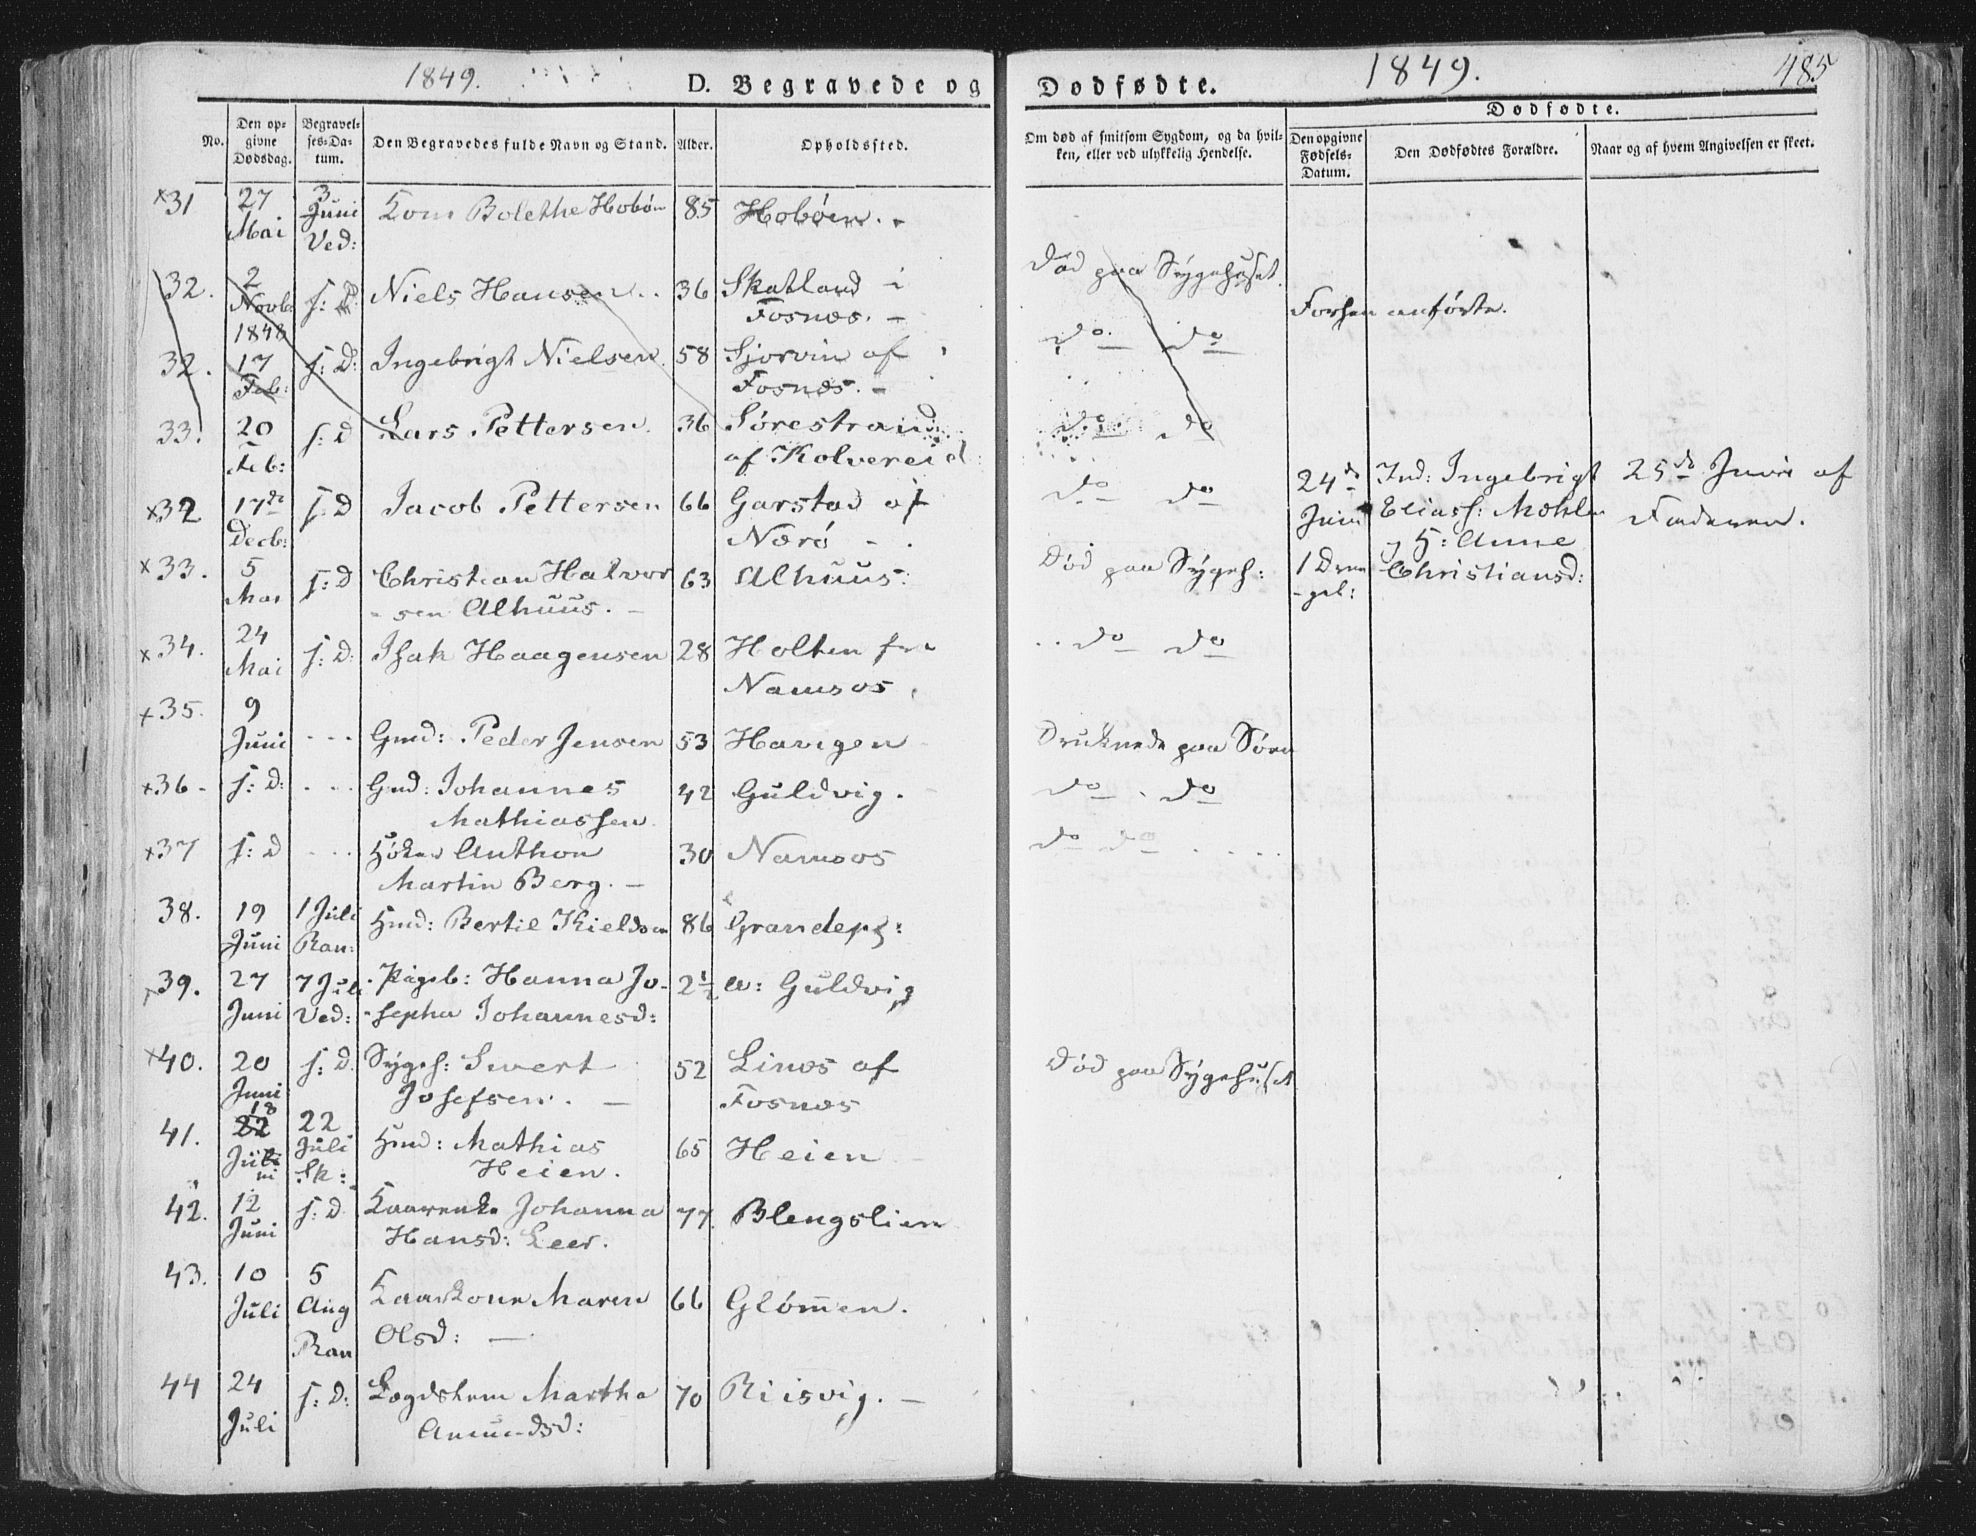 1849.
D. Begravede og
Dødfødte.
1849.
485
No.
Den op-
givne
Dødsdag.
Begravel-
ses-Da-
tum.
Den Begravedes fulde Navn og Stand.
Alder.
Opholdssted.
Om død af smitsom Sygdom, og da hvil-
ken, eller ved ulykkelig Hendelse.
Dødfødte.
Den opgivne
Fødsels-
Datum.
Den Dødfødtes Forældre.
Naar og af hvem Angivelsen er skeet.
×31 27 Mai 3 Juni Ved: Kone Bolethe Hobøen 85 Hobøen. -
32. 2 Novb: 1848 s: D. Niels Hansen .. 36 Skatland i
Fosnæs. -
Død paa Sygehuset.
Forhen anførte.
32. 17 Feb: s: D: Ingebrigt Nielsen. 58 Sjorvin af
Fosnæs. -
do do
33. 20 Feb: s: D Lars Pettersen. 36 Sørestrand
af Kolvereid.
do do
×32 17de Decb: s: D Jacob Pettersen 66 Garstad af
Nærø - .
do do
24de Juni
1 Dren
-geb:
Ind: Ingebrigt
Eliass:
H: Anne
Christiansd:
25de Juni af
Faderen.
×33. 5 Mai s: D Christian Halvor 63 Alhuus.
- sen Alhuus. -
Død paa Sygeh:
×34. 24 Mai s: D. Isak Haagensen 28 Holten fra
Namsos.
do do
×35. 9 Juni - - - Gmd: Peder Jensen 53 Havigen
Druknede paa Søen
×36 - s: D: . . . Gmd: Johannes 42 Guldvig.
Mathiassen.
do . do
×37 s: D . . . Høker Anthon 30 Namsos
Martin Berg. -
do do . . . .
38. 19 Juni 1 Juli Ran: Hmd: Bertil Kieldsen 86
×39. 27 Juni 7 Juli Ved: Pigeb: Hanna Jo- 2½ a: Guldvig
- sepha Johannesd:
×40. 20 Juni s: D. Sygeh: Sivert 52 Linæs af
Josefsen. - Fosnæs
Død paa Sygehuset
41. 18 Juni 22 Juli Sk: Hmd: Mathias 65 Heien
Heien.
42. 12 Juni s: D. Johanna 77. Blengslien
Hansd: Leer.
43. 10 Juli 5 Aug Ran Maren 66 Glømmen.
Olsd: -
44 24 Juli s: D: Lægdslem Martha 70 Riisvig. -
Amundsd: